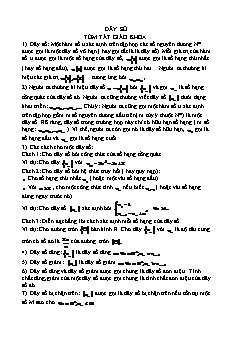 DÃY SỐ
TÓM TẮT GIÁO KHOA
1) Dãy số: Một hàm số u xác định trên tập hợp các số nguyên dương N*
được gọi là một dãy số vô hạn ( hay gọi tắt là là dãy số). Mỗi giá trị của hàm
số u được gọi là một số hạng của dãy số, được gọi là số hạng thứ nhất
( hay số hạng đầu), được gọi là số hạng thứ hai... Người ta thường kí
hiệu các giá trị tương ứng bởi
2) Người ta thường kí hiệu dãy số bởi và gọi là số hạng
tổng quát của dãy số đó. Người ta cũng thường viết dãy số dưới dạng
khai triển: Chú ý: Người ta cũng gọi một hàm số u xác định
trên tập hợp gồm m số nguyên dương đầu tiên( m tùy ý thuộc N*) là một
dãy số. Rõ ràng, dãy số trong trường hợp này chỉ có hữu hạn số hạng ( m số
hạng: ) Vì thế, người ta còn gọi nó là dãy số hữu hạn, gọi là
số hạng đầu và gọi là số hạng cuối.
3) Các cách cho một dãy số:
Cách 1: Cho dãy số bởi công thức của số hạng tổng quát
Ví dụ: Cho dãy số với
Cách 2: Cho dãy số bởi hệ thức truy hồi ( hay quy nạp):
. Cho số hạng thứ nhất ( hoặc một vài số hạng đầu)
. Với , cho một công thức tính nếu biết ( hoặc vài số hạng
đứng ngay trước nó)
Ví dụ: Cho dãy số xác định bởi
Cách 3: Diễn đạt bằng lời cách xác định mỗi số hạng của dãy số
Ví dụ: Cho đường tròn bán kính R. Cho dãy với là độ dài cung
tròn có số đo là của đường tròn
4) Dãy số tăng: là dãy số tăng
5) Dãy số giảm: là dãy số giảm
6) Dãy số tăng và dãy số giảm được gọi chung là dãy số đơn điệu. Tính
chất tăng, giảm của một dãy số được gọi chung là tính chất đơn điệu của dãy
số đó.
7) Dãy số bị chặn trên: được gọi là dãy số bị chặn trên nếu tồn tại một
số M sao cho